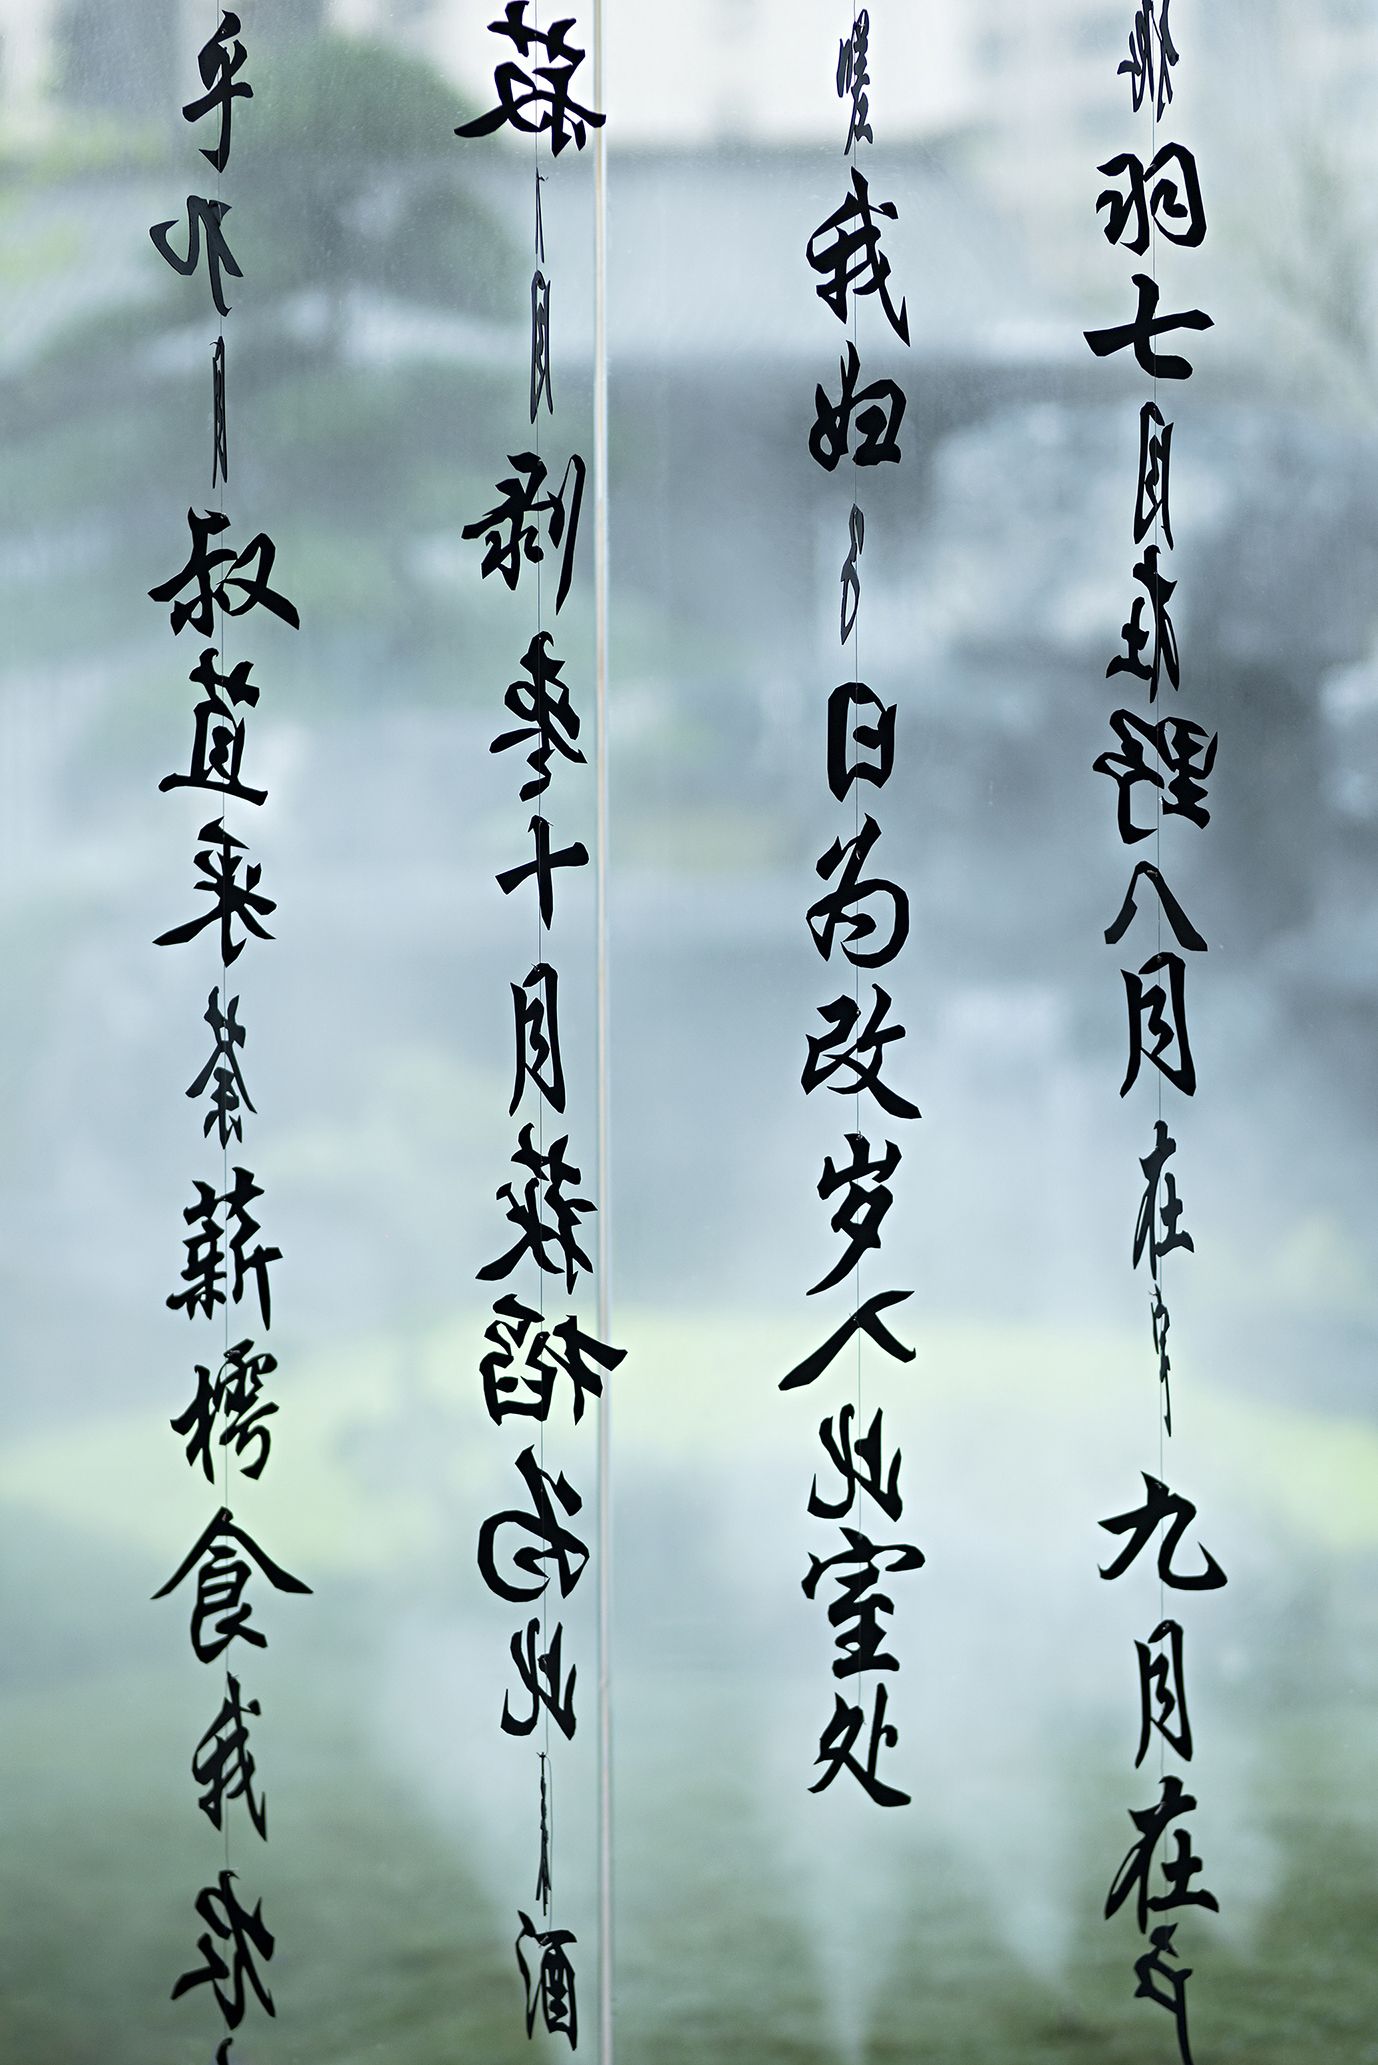 振羽七月在野八月在宇九月在户
嗟我妇子日为改岁入此室处
菽八月剥枣十月获稻为此春酒
乎九月叔苴采荼薪樗食我农